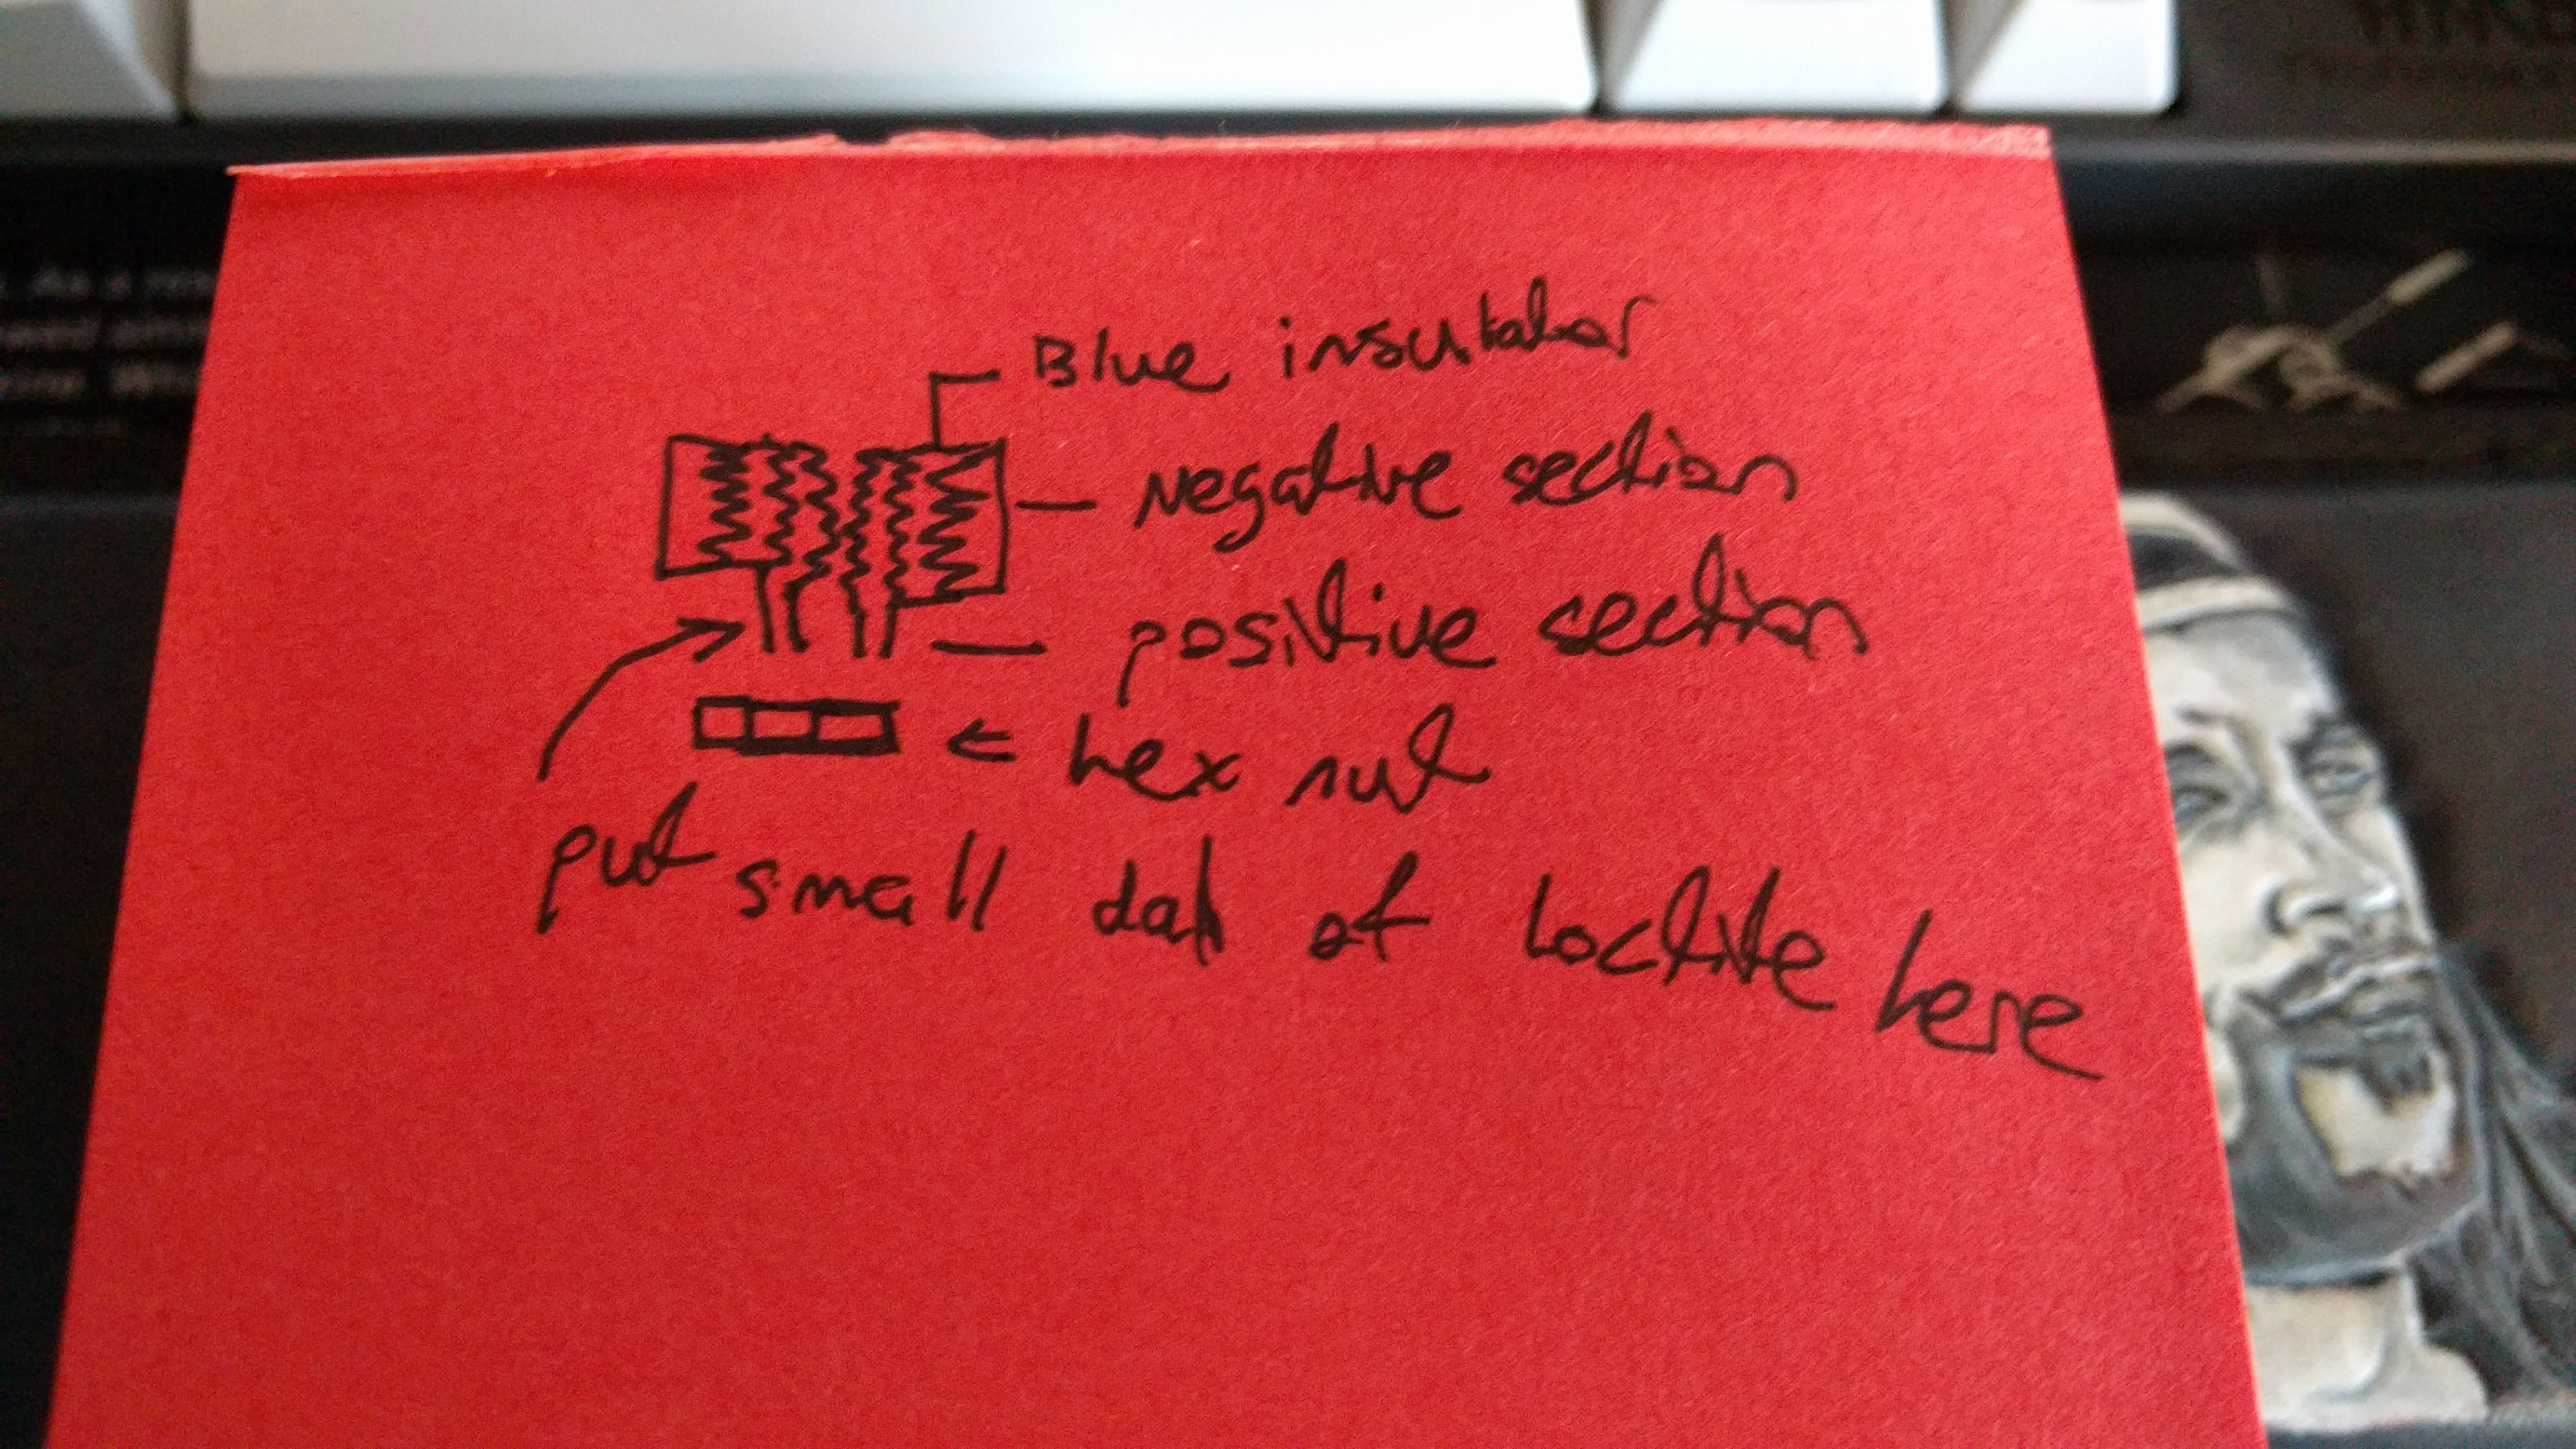 Blue insulator
negative section
positive section
hex nut
put small dab of Loctite here
. As a